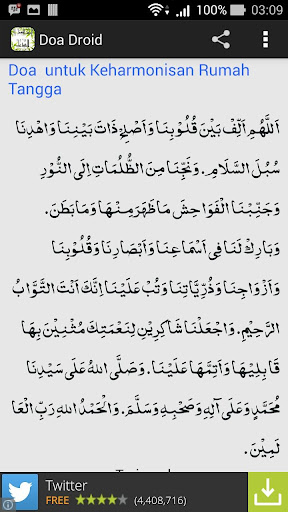 100% 03:09
Doa Droid
Doa untuk Keharmonisan Rumah
Tangga
اَللّٰهُمَّ اَلِّفْ بَيْنَ قُلُوْبِنَا وَاَصْلِحْ ذَاتَ بَيْنِنَا وَاهْدِنَا
سُبُلَ السَّلَامِ. وَنَجِّنَا مِنَ الظُّلُمَاتِ اِلَى النُّوْرِ
وَجَنِّبْنَا الْفَوَاحِشَ مَاظَهَرَ مِنْهَا وَمَابَطَنَ.
وَبَارِكْ لَنَا فِى اَسْمَاعِنَا وَاَبْصَارِنَا وَقُلُوْبِنَا
وَاَزْوَاجِنَا وَذُرِّيَّاتِنَا وَتُبْ عَلَيْنَا اِنَّكَ اَنْتَ التَّوَّابُ
الرَّحِيْمُ. وَاجْعَلْنَا شَاكِرِيْنَ لِنِعْمَتِكَ مُثْنِيْنَ بِهَا
قَابِلِيْهَا وَاَتِمَّهَا عَلَيْنَا. وَصَلَّى اللهُ عَلَى سَيِّدِنَا
مُحَمَّدٍ وَعَلَى آلِهِ وَصَحْبِهِ وَسَلَّمَ. وَالْحَمْدُ للهِ رَبِّ الْعَا
لَمِيْنَ.
Twitter
FREE (4,408,716)